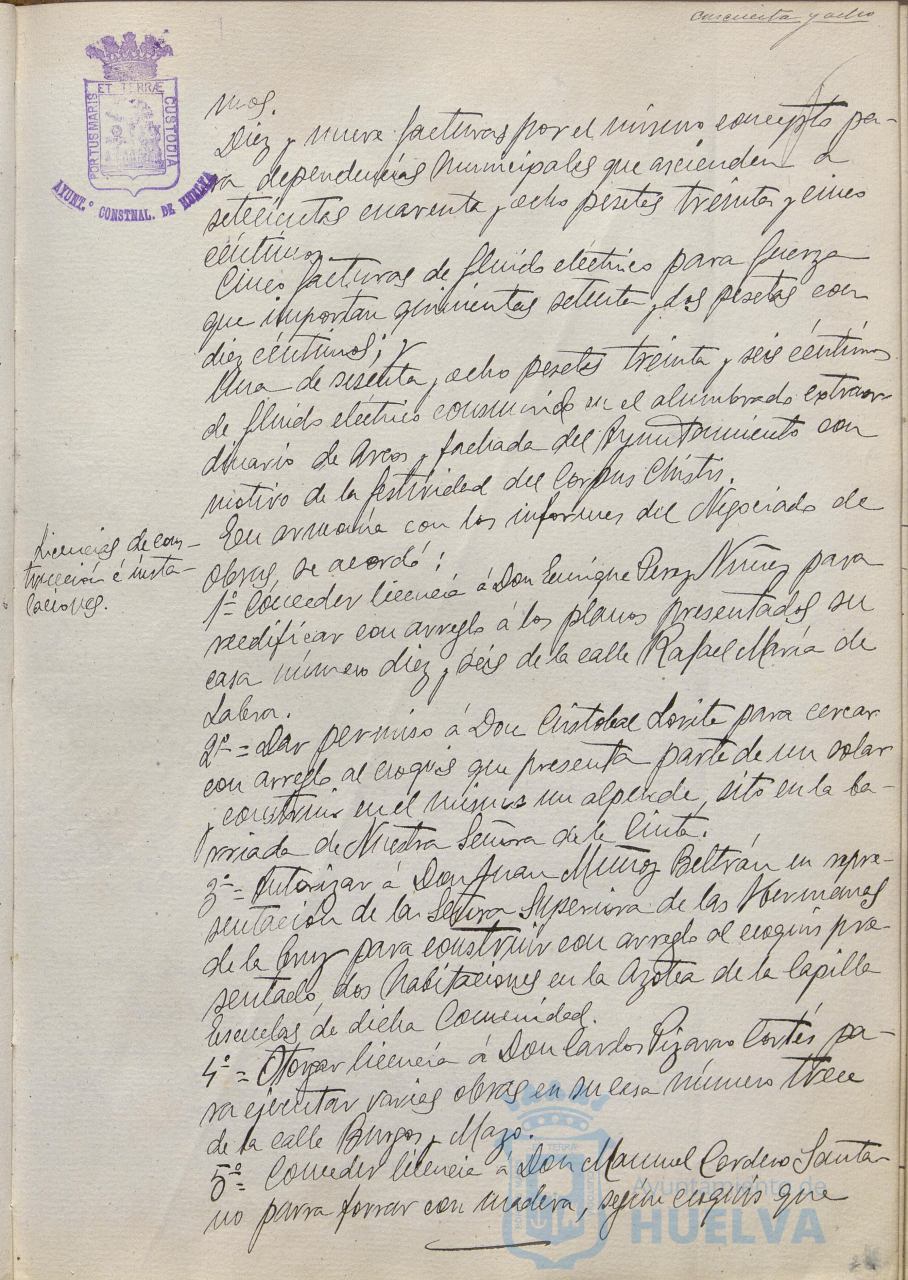 cincuenta y ocho
PORTUS MARIS ET TERRÆ CUSTODIA
AYUNT.º CONSTNAL. DE HUELVA
mos.
Diez y nueve facturas por el mismo concepto pa-
ra dependencias Municipales que ascienden a
setecientas cuarenta y ocho pesetas treinta y cinco
céntimos.
Cinco facturas de fluido eléctrico para fuerza
que importan quinientas setenta y dos pesetas con
diez céntimos; y
Una de sesenta y ocho pesetas treinta y seis céntimos
de fluido eléctrico consumido en el alumbrado extraor-
dinario de Arcos y fachada del Ayuntamiento con
motivo de la festividad del Corpus Christi.
Licencias de cons-
trucción é insta-
laciones.
En armonía con los informes del Negociado de
Obras, se acordó:
1º = Conceder licencia á Don Enrique Perez Núñez para
reedificar con arreglo á los planos presentados su
casa número diez y seis de la calle Rafael María de
Labra.
2º = Dar permiso á Don Cristobal Lorite para cercar
con arreglo al croquis que presenta parte de un solar
y construir en el mismo un alpende, sito en la ba-
rriada de Nuestra Señora de la Cinta.
3º = Autorizar á Don Juan Muñoz Beltrán en repre-
sentación de la Señora Superiora de las Hermanas
de la Cruz para construir con arreglo al croquis pre-
sentado, dos habitaciones en la Azotea de la Capilla
Escuelas de dicha Comunidad.
4º = Otorgar licencia á Don Carlos Pizarro Cortés pa-
ra ejecutar varias obras en su casa número trece
de la calle Burgos y Mazo.
5º = Conceder licencia á Don Manuel Cordero Santa-
no para forrar con madera, según croquis que
Ayuntamiento de
HUELVA